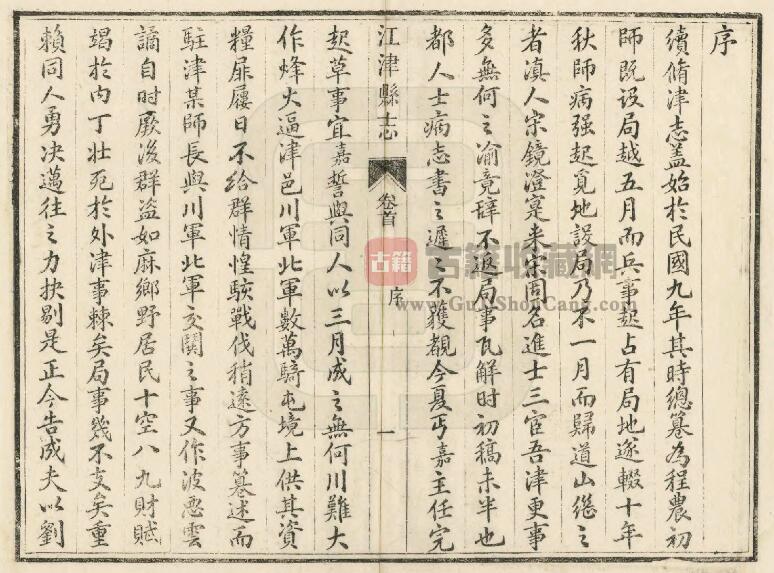 序
續脩津志蓋始於民國九年其時總纂為程農初
師既設局越五月而兵事起占有局地遂輟十年
秋師病强起覓地設局乃不一月而歸道山繼之
者滇人宋鏡澄寔來宋固名進士三宦吾津更事
多無何之渝竟辭不返局事瓦解時初稿未半也
都人士病志書之遲之不獲覩今夏丐嘉主任完
江津縣志
卷首
序
一
起草事宜嘉誓與同人以三月成之無何川難大
作烽火逼津邑川軍北軍數萬騎屯境上供其資
糧屝屨日不給群情惶駭戰伐稍遠方事纂述而
駐津某師長與川軍北軍交閧之事又作波悪雲
譎自時厥後群盜如麻鄉野居民十空八九財賦
竭於內丁壯死於外津事棘矣局事幾不支矣重
賴同人勇決邁往之力抉剔是正今告成夫以劉
古籍
古籍收藏网
www.GujiShouCang.com